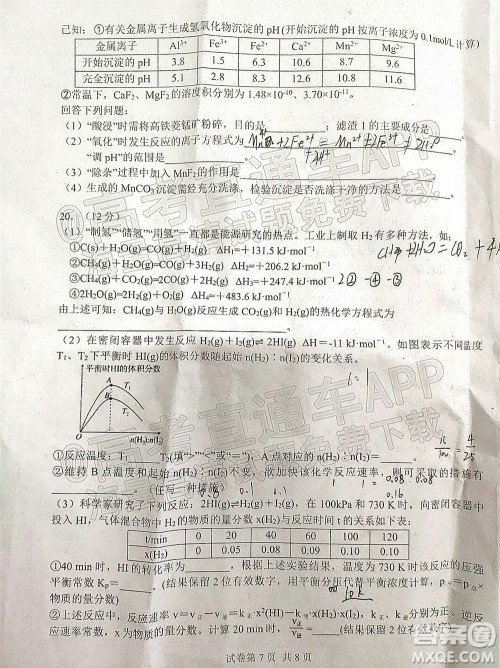 已知：①有关金属离子生成氢氧化物沉淀的 pH(开始沉淀的 pH 按离子浓度为 0.1mol/L 计算)
金属离子 Al³⁺ Fe³⁺ Fe²⁺ Ca²⁺ Mn²⁺ Mg²⁺
开始沉淀的 pH 3.8 1.5 6.3 10.6 8.7 9.6
完全沉淀的 pH 5.1 2.8 8.3 12.6 10.8 11.6
②常温下，CaF₂、MgF₂ 的溶度积分别为 1.48×10⁻¹⁰、3.70×10⁻¹¹。
回答下列问题：
(1)“酸浸”时需将高铁菱锰矿粉碎，目的是 ；滤渣 1 的主要成分是
(2)“氧化”时发生反应的离子方程式为
“调 pH”的范围是
(3)“除杂”过程中加入 MnF₂ 的作用是
(4) 生成的 MnCO₃ 沉淀需经充分洗涤，检验沉淀是否洗涤干净的方法是
20. (12 分)
(1)“制氢”“储氢”“用氢”一直都是能源研究的热点。工业上制取 H₂ 有多种方法，如：
①C(s)+H₂O(g)=CO(g)+H₂(g) ΔH₁=+131.5 kJ·mol⁻¹
②CH₄(g)+H₂O(g)=CO(g)+3H₂(g) ΔH₂=+206.2 kJ·mol⁻¹
③CH₄(g)+CO₂(g)=2CO(g)+2H₂(g) ΔH₃=+247.4 kJ·mol⁻¹ 2②-③
④2H₂O(g)=2H₂(g)+O₂(g) ΔH₄=+483.6 kJ·mol⁻¹
由上述可知：CH₄(g) 与 H₂O(g)反应生成 CO₂(g) 和 H₂(g)的热化学方程式为
(2) 在密闭容器中发生反应 H₂(g)+I₂(g)⇌2HI(g) ΔH=-11 kJ·mol⁻¹。如图表示不同温度
T₁、T₂ 下平衡时 HI(g)的体积分数随起始 n(H₂)∶n(I₂)的变化关系。
平衡时HI的体积分数
A
B
T₁
T₂
n(H₂):n(I₂)
1:1
①反应温度：T₁ T₂(填“>”“<”或“=”)，A 点对应的 n(H₂)∶n(I₂)=
②维持 B 点温度和起始 n(H₂)∶n(I₂)不变，欲加快该化学反应速率，则可采取的措施有
(任写一种措施)
(3) 科学家研究了下列反应：2HI(g)⇌H₂(g)+I₂(g)，在 100kPa 和 730 K 时，向密闭容器中
投入 HI，气体混合物中 H₂ 的物质的量分数 x(H₂)与反应时间 t 的关系如下表：
t/min 0 20 40 60 100 120
x(H₂) 0 0.05 0.08 0.09 0.10 0.10
①40 min 时，HI 的转化率为 ，根据上述实验结果，温度为 730 K 时该反应的压强
平衡常数 Kₚ= (结果保留 2 位有效数字，用平衡分压代替平衡浓度计算，p分=p总×
物质的量分数)
②上述反应中，反应速率 v=v正-v逆=k正·x²(HI)-k逆·x(H₂)·x(I₂)，k正、k逆分别为正、逆反
应速率常数，x 为物质的量分数，计算 20 min 时，v正/v逆= (结果保留 2 位有效数字)
试卷第 7 页 共 8 页
答案圈
MXQE.COM